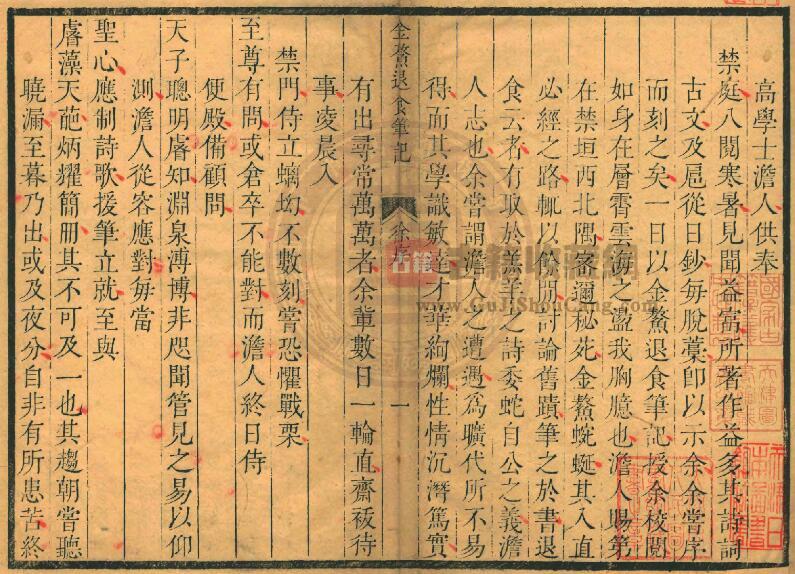 高學士澹人供奉
禁庭八閱寒暑見聞益富所著作益多其詩詞
古文及扈從日鈔每脫藁即以示余余嘗序
而刻之矣一日以金鰲退食筆記授余校閱
如身在層霄雲海之盪我胸臆也澹人賜第
在禁垣西北隅密邇秘苑金鰲蜿蜒其入直
必經之路輒以餘閒討論舊蹟筆之於書退
食云者有取於羔羊之詩委蛇自公之義澹
人志也余嘗謂澹人之遭遇為曠代所不易
得而其學識敏達才華絢爛性情沉潛篤實
金鰲退食筆記
一
有出尋常萬萬者余輩數日一輪直齋祓待
事凌晨入
禁門侍立螭坳不數刻嘗恐懼戰栗
至尊有問或倉卒不能對而澹人終日侍
便殿備顧問
天子聰明睿知淵泉溥博非咫聞管見之易以仰
測澹人從容應對每當
聖心應制詩歌援筆立就至與
睿藻天葩炳燿簡冊其不可及一也其趨朝嘗聽
曉漏至暮乃出或及夜分自非有所患苦終
古籍收藏網
www.GuJiShouCang.com